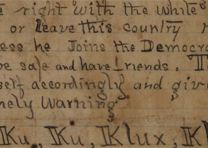 right with the whites
or leave this country
he Joins the Democra
be safe and have friends. T
self accordingly and give
nely Warning
Ku, Ku, Klux, Kl